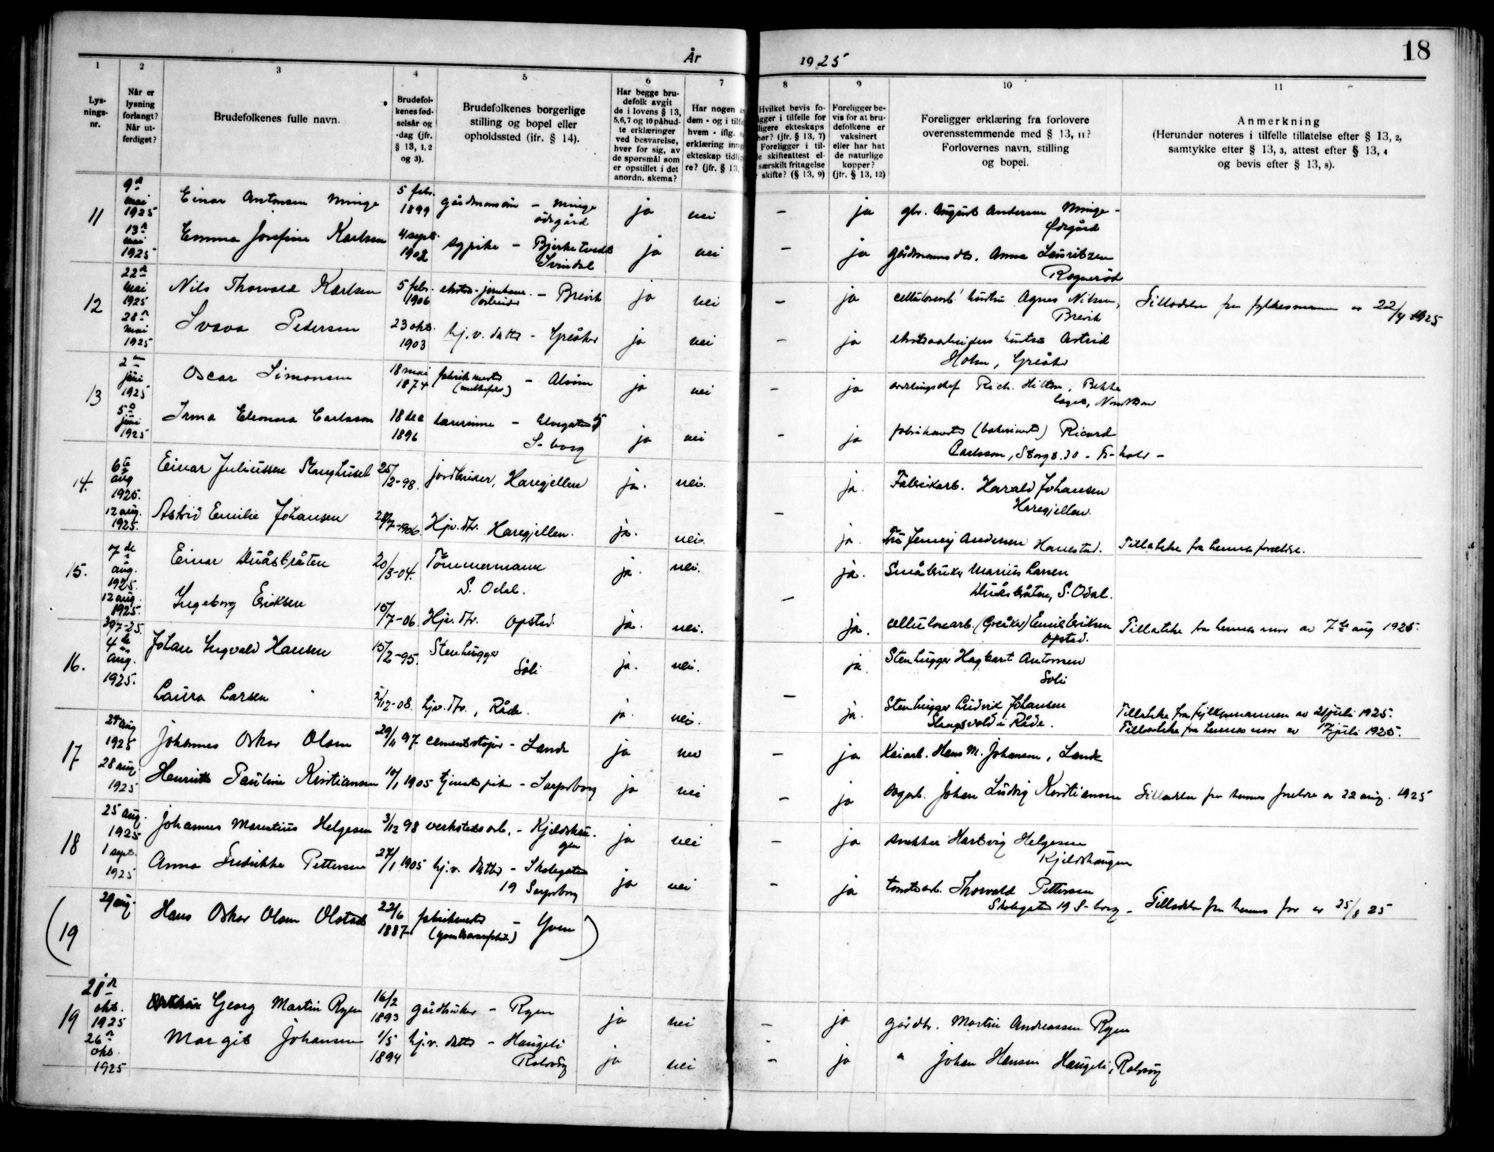 År 1925
18
1 2 3 4 5 6 7 8 9 10 11
Lys-
nings-
nr.
Når er
lysning
forlangt?
Når ut-
ferdiget?
Brudefolkenes fulle navn.
Brudefol-
kenes fød-
selsår og
-dag (jfr.
§ 13, 1, 2
og 3).
Brudefolkenes borgerlige
stilling og bopel eller
opholdssted (jfr. § 14).
Har begge bru-
defolk avgit
de i lovens § 13,
5,6,7 og 10 påbud-
te erklæringer
ved besvarelse,
hver for sig, av
de spørsmål som
er opstillet i det
anordn. skema?
Har nogen a
dem - og i tilf
hvem - iflg. a
erklæring inng
ekteskap tidlig
re? (jfr. § 13,
Hvilket bevis fo-
ligger i tilfelle for
ligere ekteskaps
hør? (jfr. § 13, 7)
Foreligger i til-
le skifteattest el-
særskilt fritagelse
skifte? (§ 13, 9)
Foreligger be-
vis for at bru-
defolkene er
vaksinert
eller har hat
de naturlige
kopper?
(jfr. § 13, 12)
Foreligger erklæring fra forlovere
overensstemmende med § 13, 11?
Forlovernes navn, stilling
og bopel.
Anmerkning
(Herunder noteres i tilfelle tillatelse efter § 13, 2,
samtykke efter § 13, 3, attest efter § 13, 4
og bevis efter § 13, 8).
11
9de mai 1925 Einar Antonsen Minge 5 febr. 1899 gårdmannssøn - Minge ødegård ja nei - ja gbr. August Andersen Minge - Ødegård
13de mai 1925 Emma Josefine Karlsen 4 sept. 1902 sypike - Bjerketvedt Svindal ja nei - ja gårdmanns dtr. Anna Lauritzen Rognerød
12
22de mai 1925 Nils Thorvald Karlsen 5 febr. 1906 - Brevik ja nei - ja hustru Agnes Nilsen, Brevik Tilladelse fra fylkesmannen av 22/4 1925
28de mai 1925 Svava Pedersen 23 okt. 1903 hj.v. datter - Greåker ja nei - ja hustru Astrid Holm, Greåker
13
2den juni 1925 Oscar Simonsen 18 mai 1874 - Alvim ja nei - ja Rich. Hilton,
5te juni 1925 Irma Eleonora Carlsson 18 dec 1896 lærerinne - 5 S-borg ja nei - ja (bakermester) Ricard Carlsson, 30 -
14.
6te aug 1925. Einar Juliussen Stanghuset 25/2-98. jordbruker, Haregjellen ja. nei. ja. Fabrikarb. Harald Johansen Haregjellen.
12 aug. 1925. Astrid Emilie Johansen 1906 Hjv. dtr. Haregjellen. ja. nei. - ja. Fru Jenny Andersen Hanestad. Tillatelse fra hennes foreldre.
15.
7de aug. 1925. Einar Duåsbråten 20/3-04. Tømmermann S. Odal. ja. nei. ja. Småbruker Marius Larsen Duåsbråten, S. Odal.
12 aug. 1925. Ingeborg Eriksen 15/7-06. Hjv. dtr. Opstad. ja. nei. - ja. cellulosearb. (Greåker) Emil Eriksen Opstad. Tillatelse fra hennes mor av 7de aug 1925.
16.
4de aug. 1925. Johan Ingvald Hansen 15/2-95. Stenhugger Soli ja. nei. ja. Stenhugger Hagbart Antonsen Soli
Laura Larsen 2/12-08. hjv. dtr., Råde. ja. nei. - ja. Stenhugger Ludvik Johansen Slangsvold i Råde. Tillatelse fra fylkesmannen av 21 juli 1925.
Tillatelse fra hennes mor av 17 juli 1925.
17
24 aug 1925 Johannes Oskar Olsen 97 cementstøper - Lande ja nei - ja Kaiarb. Hans M. Johansen, Lande
28 aug. 1925 Henriette Pauline Kristiansen 10/1 1905 tjenestepike - Sarpsborg ja nei - ja Johan Ludvig Kristiansen Tilladelse fra hennes foreldre av 22 aug. 1925
18
25 aug. 1925 Johannes Marentius Helgesen 3/12 98 verkstedsarb. - Kjeldshau-gen ja nei - ja snekker Hartvig Helgesen Kjeldshaugen
1 sept. 1925 Anna Fredrikke Pettersen 27/1 1905 hj.v. datter - Skolegaten 19 Sarpsborg ja nei - ja tomtearb. Thorvald Pettersen Skolegaten 19 S-borg - Tilladelse fra hennes far av 25/8 25
(19
29 aug. Hans Oskar Olsen Olstad 22/6 1887 - Yven )
19
21de okt. 1925 Georg Martin Ryen 16/2 1893 gårdbruker - Ryen ja nei - ja gårdbr. Martin Andreassen Ryen
26de okt. 1925 Margit Johansen 1/5 1894 hj.v. datter - Haugeli Rolvsøy ja nei - ja " Johan Hansen Haugeli, Rolvsøy